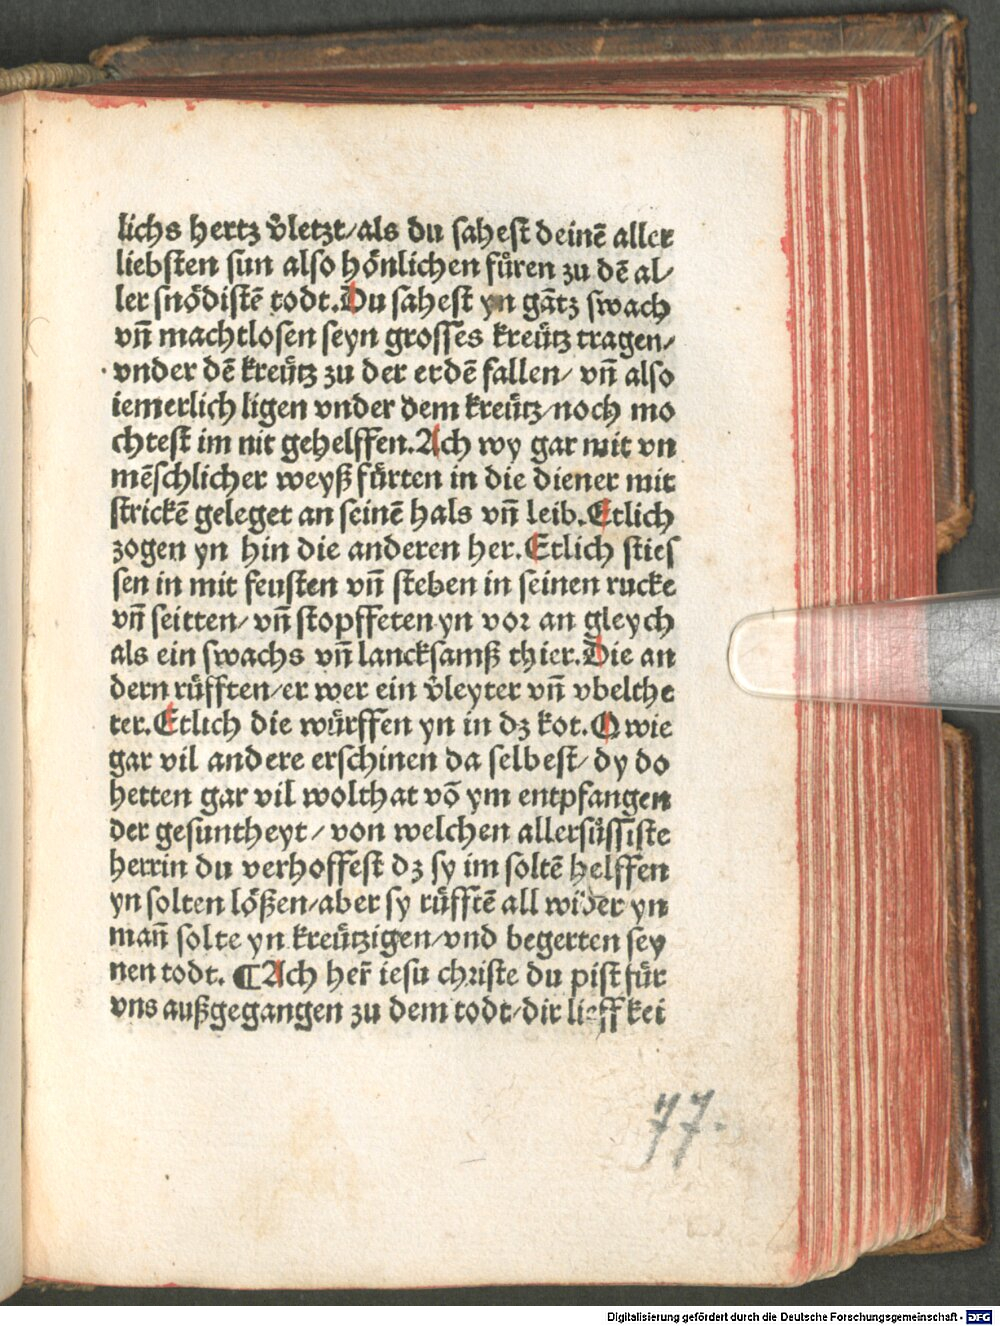 lichs hertz v̊letzt/als du sahest deinē aller
liebsten sun also hönlichen füren zu dē al/
ler snödistē todt.Du sahest yn gātz swach
vn̄ machtlosen seyn grosses kreütz tragen/
vnder dē kreütz zu der erdē fallen/ vn̄ also
iemerlich ligen vnder dem kreütz/noch mo
chtest im nit gehelffen.Ach wy gar mit vn
mēschlicher weyß fürten in die diener mit
strickē geleget an seinē hals vn̄ leib.Etlich
zogen yn hin die anderen her.Etlich sties
sen in mit feusten vn̄ steben in seinen rucke
vn̄ seitten/ vn̄ stopffeten yn vor an gleych
als ein swachs vn̄ lancksamß thier.Die an
dern rüfften/er wer ein v̊leyter vn̄ vbelthe
ter.Etlich die würffen yn in dz kot.O wie
gar vil andere erschinen da selbest/ dy do
hetten gar vil wolthat vō ym entpfangen
der gesuntheyt/ von welchen allersüssiste
herrin du verhoffest dz sy im soltē helffen
yn solten lößen/aber sy rüfftē all wider yn
man̄ solte yn kreützigen/vnd begerten sey
nen todt. ¶Ach her̄ iesu christe du pist für
vns außgegangen zu dem todt/dir lieff kei
77.
Digitalisierung gefördert durch die Deutsche Forschungsgemeinschaft - DFG